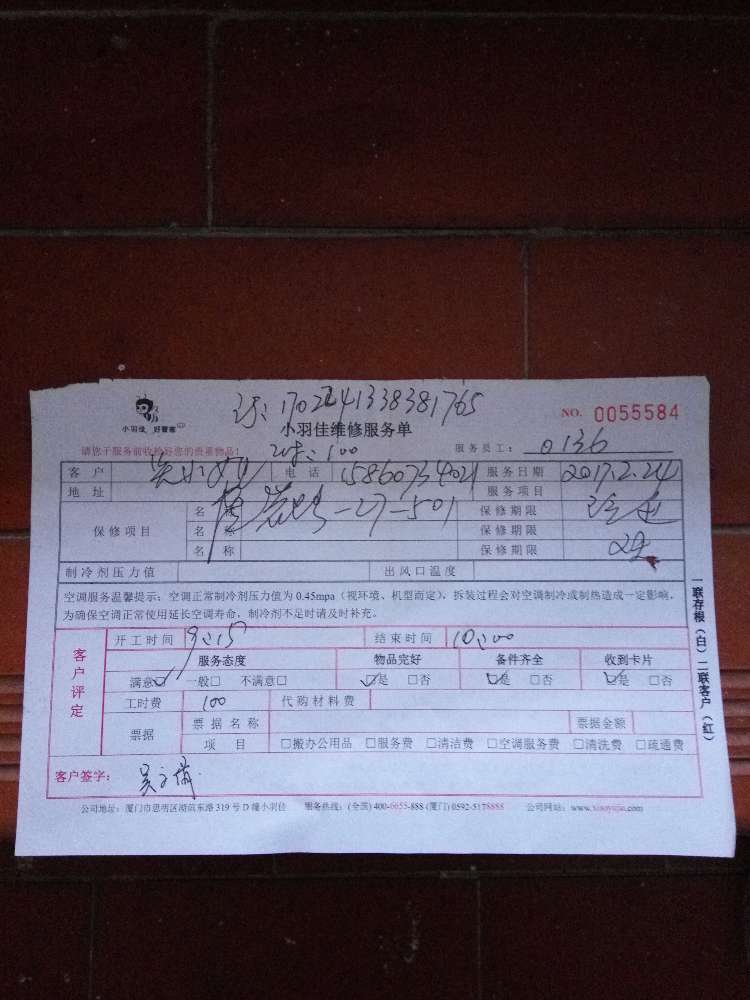 1702241338381765
小羽佳 好管家
小羽佳维修服务单
NO. 0055584
请您于服务前收拾好您的贵重物品!
100
服务员工: 0136
客户 电话 服务日期 2017.2.24
地址 -27-501 服务项目
保修项目
名称 保修期限
名称 保修期限
名称 保修期限
制冷剂压力值 出风口温度
空调服务温馨提示:空调正常制冷剂压力值为0.45mpa(视环境、机型而定),拆装过程会对空调制冷或制热造成一定影响,
为确保空调正常使用延长空调寿命,制冷剂不足时请及时补充。
客户评定
开工时间 9:15 结束时间 10:00
服务态度 物品完好 备件齐全 收到卡片
满意☑ 一般□ 不满意□ ☑是 □否 ☑是 □否 ☑是 □否
工时费 100 代购材料费
票据 票据名称 票据金额
项目 □搬办公用品 □服务费 □清洁费 □空调服务费 □清洗费 □疏通费
客户签字:
公司地址:厦门市思明区湖滨东路319号D幢小羽佳 服务热线:(全国)400-6655-888 (厦门)0592-5178888 公司网站:www.xiaoyujia.com
一联存根(白) 二联客户(红)